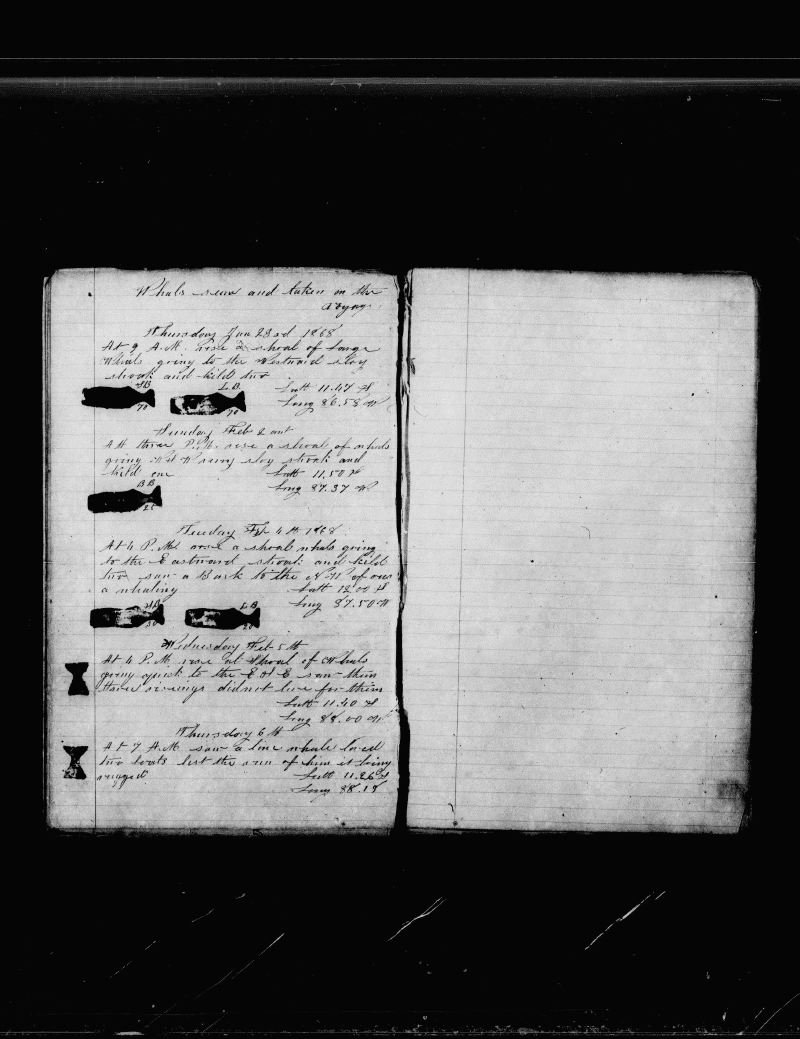 Whals seen and taken on the
Voyag
Thursday Jan 23rd 1868
At 9 A.M. rose a shoal of large
Whals going to the Westward sloy
strock and kild two
SB LB Latt 11.47 S
70 70 Long 86.58 W
Sunday Feb 2
At three P.M. rose a shoal of whals
going sloy strock and
kild one Latt 11.50 S
BB Long 87.37 W
25
Tuesday Feb 4 th 1868
At 4 P.M. rose a shoal whals going
to the Eastward strock and kild
two saw a Bark to the N.W of ous
a whaling Latt 12.00 S
SB LB Long 87.50 W
Wednesday Feb 5 th
At 4 P.M. rose a Shoal of Whals
going quick to the E saw them
three risings did not low for them
Latt 11.40 S
Long 88.00 W
Thursday 6 th
At 7 A.M. saw a lone whale lored
two boats lost the run of him it being
ruged Latt 11.26 S
Long 88.18